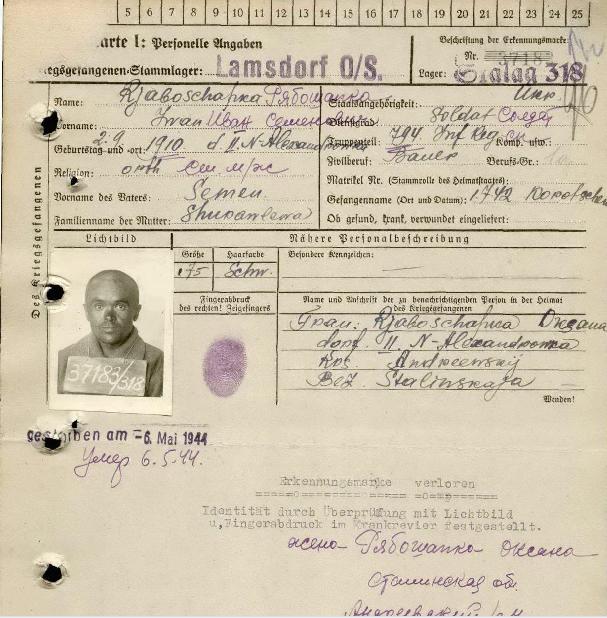 5 6 7 8 9 10 11 12 13 14 15 16 17 18 19 20 21 22 23 24 25
arte I: Personelle Angaben
iegsgefangenen-Stammlager: Lamsdorf O/S.
Beschriftung der Erkennungsmarke
Nr. 37183
Lager: Stalag 318
Des Kriegsgefangenen
Name: Rjaboschapka Рябошапка
Vorname: Iwan Иван Семенович
Geburtstag und -ort: 2.9. 1910 d. II. N-Alexandrowka
Religion: orth
Vorname des Vaters: Semen
Familienname der Mutter:
Staatsangehörigkeit: Ukr.
Dienstgrad: Soldat Солдат
Truppenteil: 794. Inf. Reg. Komp. usw.:
Zivilberuf: Bauer Berufs-Gr.:
Matrikel Nr. (Stammrolle des Heimatstaates):
Gefangennahme (Ort und Datum): 1.7.42
Ob gesund, krank, verwundet eingeliefert:
Lichtbild
Nähere Personalbeschreibung
Größe Haarfarbe Besondere Kennzeichen:
175 Schw. —
37183/318
Fingerabdruck
des rechten! Zeigefingers
Name und Anschrift der zu benachrichtigenden Person in der Heimat
des Kriegsgefangenen
Frau: Rjaboschapka Oksana
dorf. II. N-Alexandrowka
Andreewskij
Bez. Stalinskaja
Wenden!
gestorben am -6. Mai 1944
Умер 6.5.44.
Erkennungsmarke verloren
Identität durch Überprüfung mit Lichtbild
u,Fingerabdruck im Krankrevier festgestellt.
жена Рябошапка Оксана
Сталинская об.